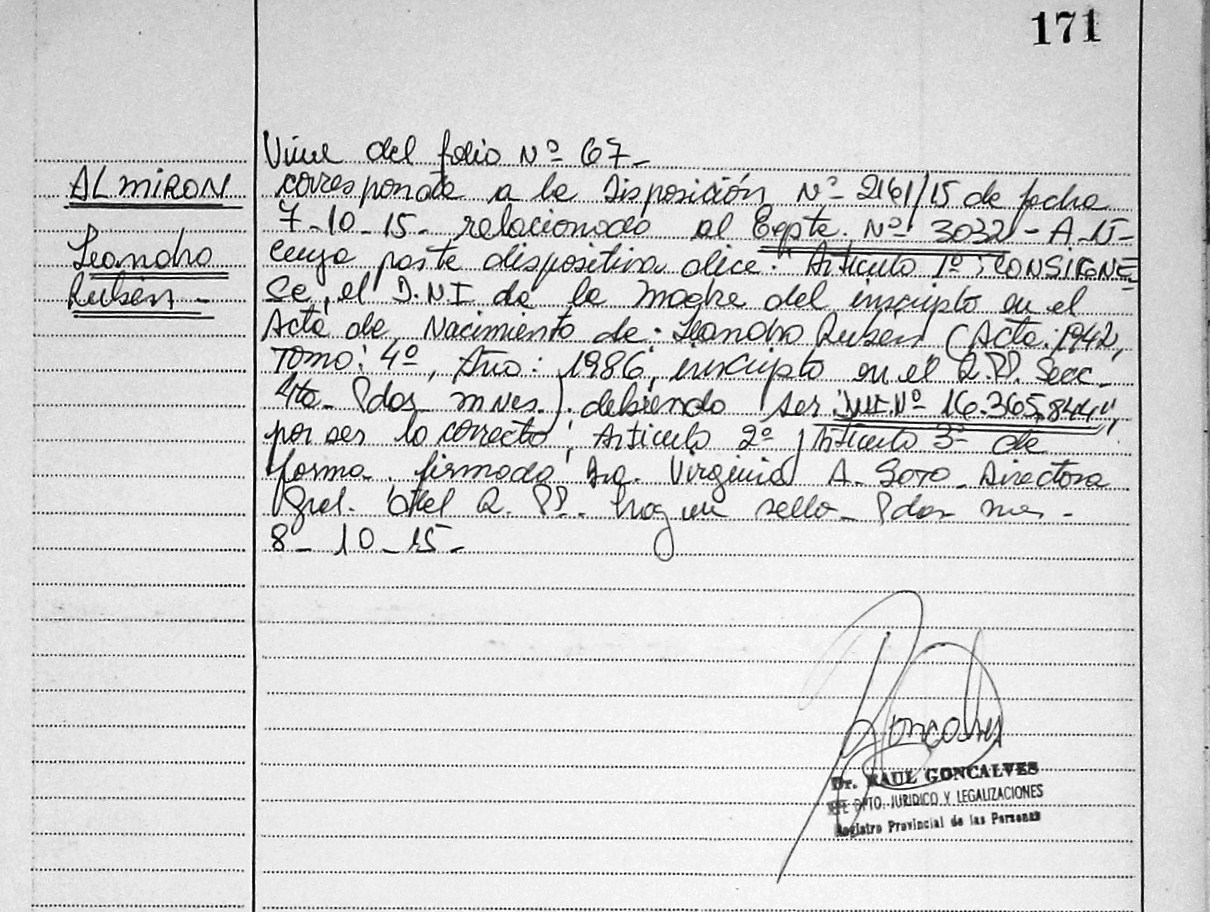 171
ALMIRON
Leandro
Rubén -
Viene del folio Nº 67-
corresponde a la Disposición Nº 2161/15 de fecha
7-10-15- relacionado al Expte. Nº 3032-A-15-
cuya parte dispositiva dice: Articulo 1º: CONSIGNE
Se, el D.N.I de la madre del inscripto en el
Acta de Nacimiento de: Leandro Ruben (Acta: 1942,
Tomo: 4º, Año: 1986, inscripto en el R.PP. Secc-
4ta- Pdas mnes.) debiendo ser Nº 16.365.844",
por ser lo correcto; Articulo 2º, Articulo 3º de
forma. firmado Dra. Virginia A. Soto- Directora
Gral. del R. PP. hay un sello- Pdas mnes-
8-10-15-
Goncalves
Dr. RAUL GONCALVES
JEFE DPTO. JURIDICO Y LEGALIZACIONES
Registro Provincial de las Personas